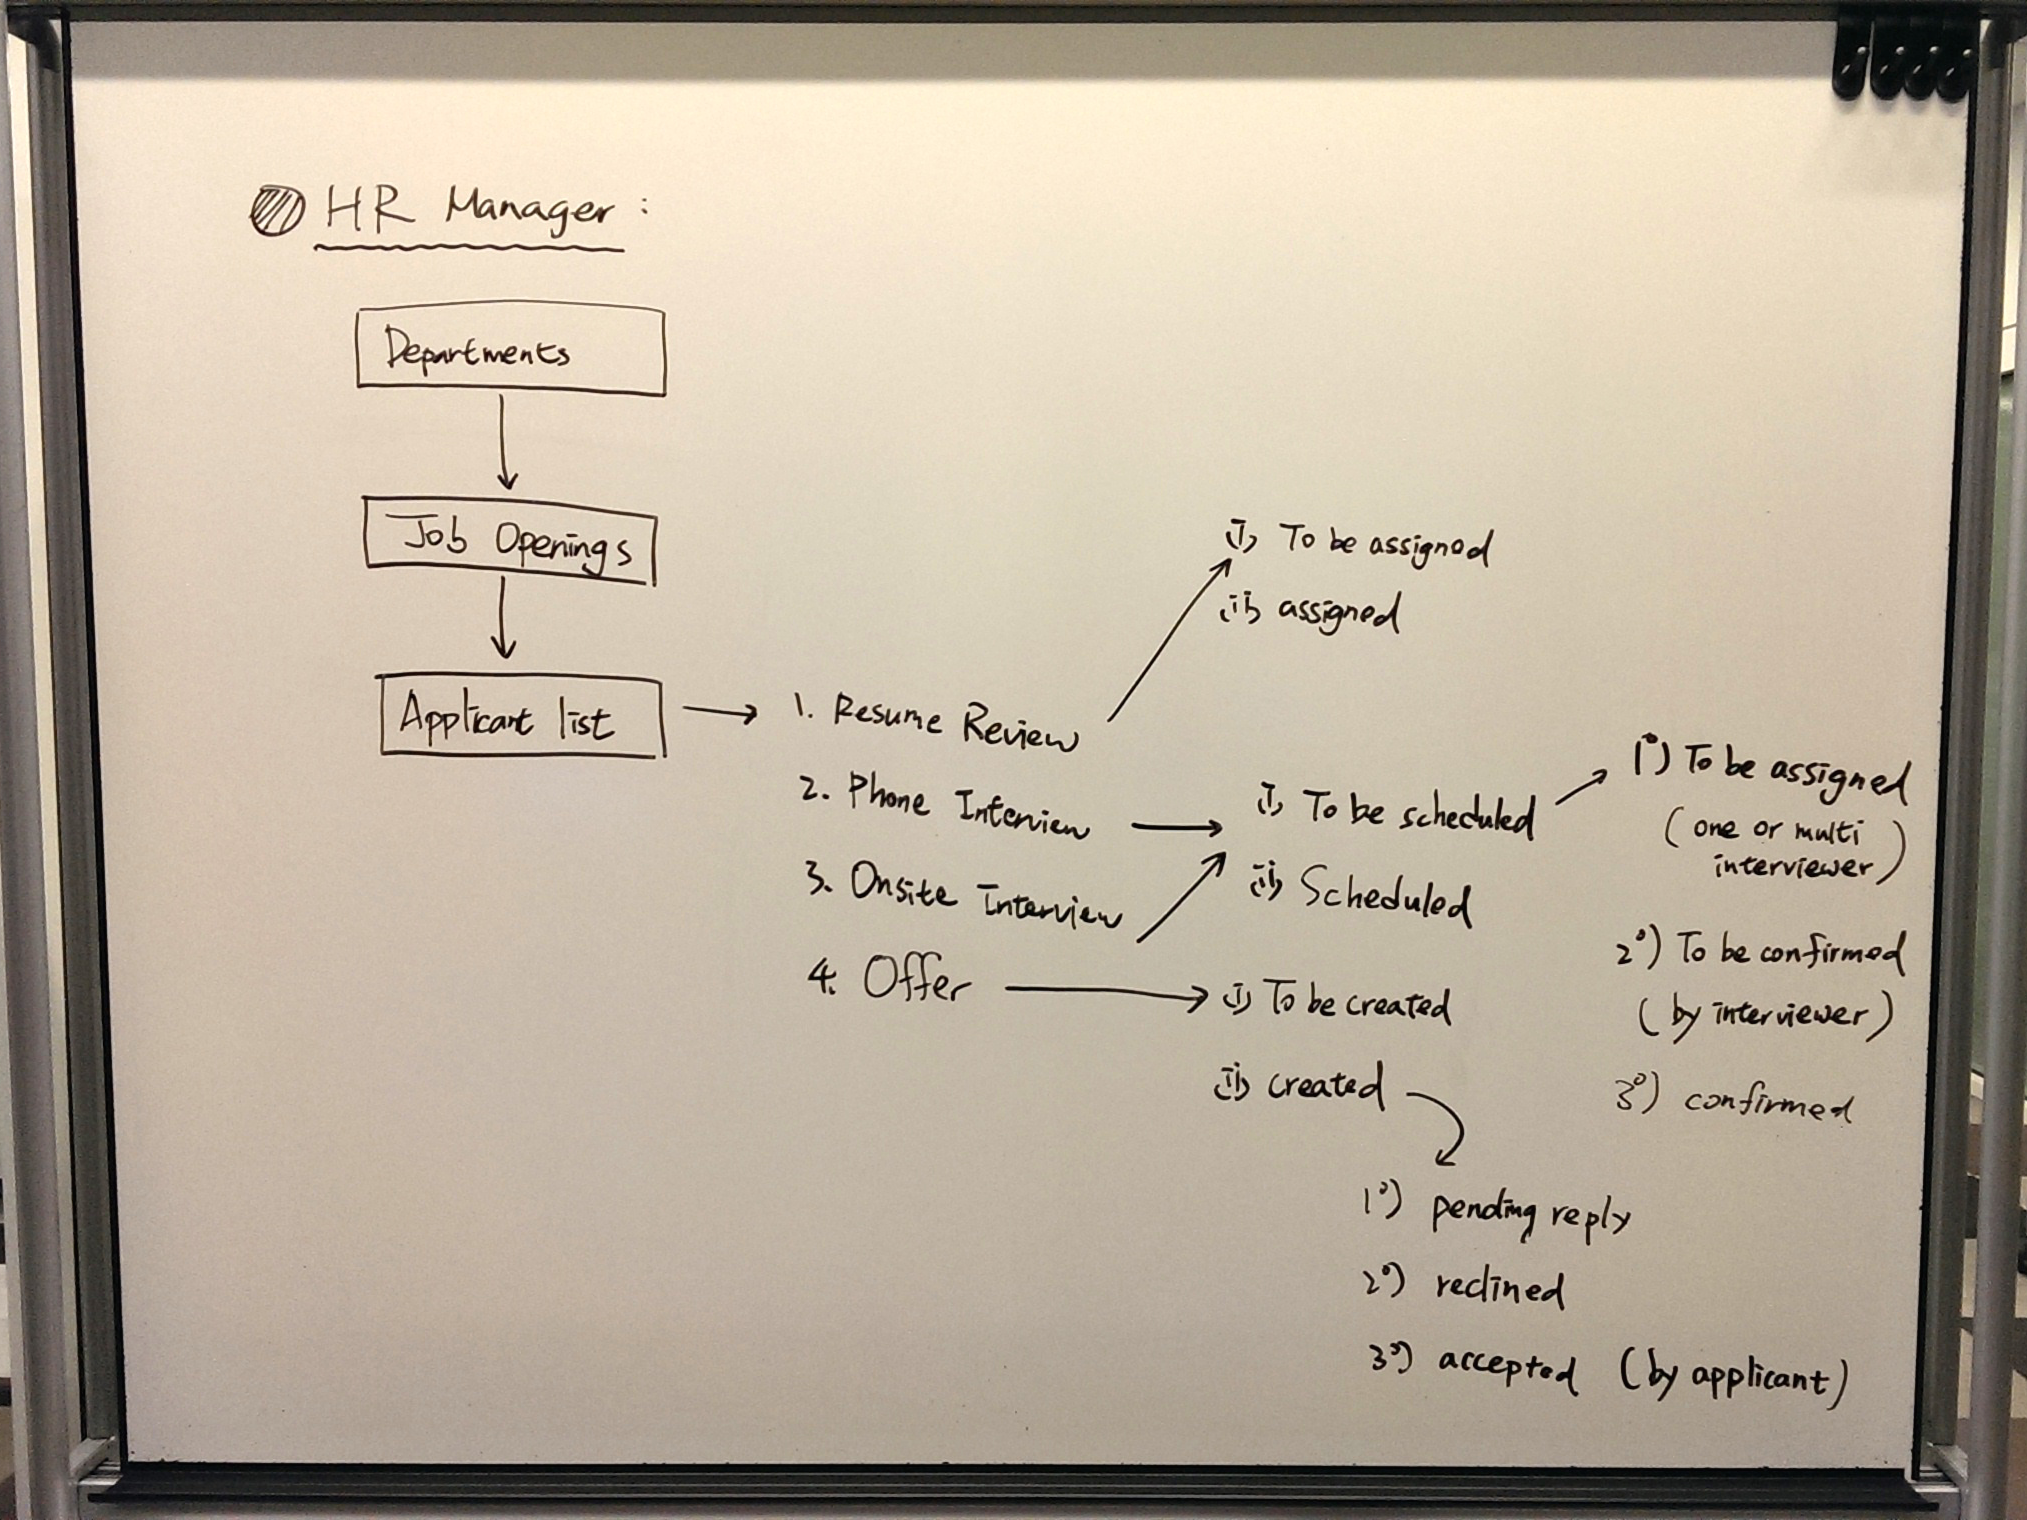 HR Manager :
Departments
Job Openings
Applicant list
1. Resume Review
i) To be assigned
ii) assigned
2. Phone Interview
3. Onsite Interview
i) To be scheduled
ii) Scheduled
1°) To be assigned
(one or multi
interviewer)
2°) To be confirmed
(by interviewer)
3°) confirmed
4. Offer
i) To be created
ii) created
1°) pending reply
2°) reclined
3°) accepted (by applicant)